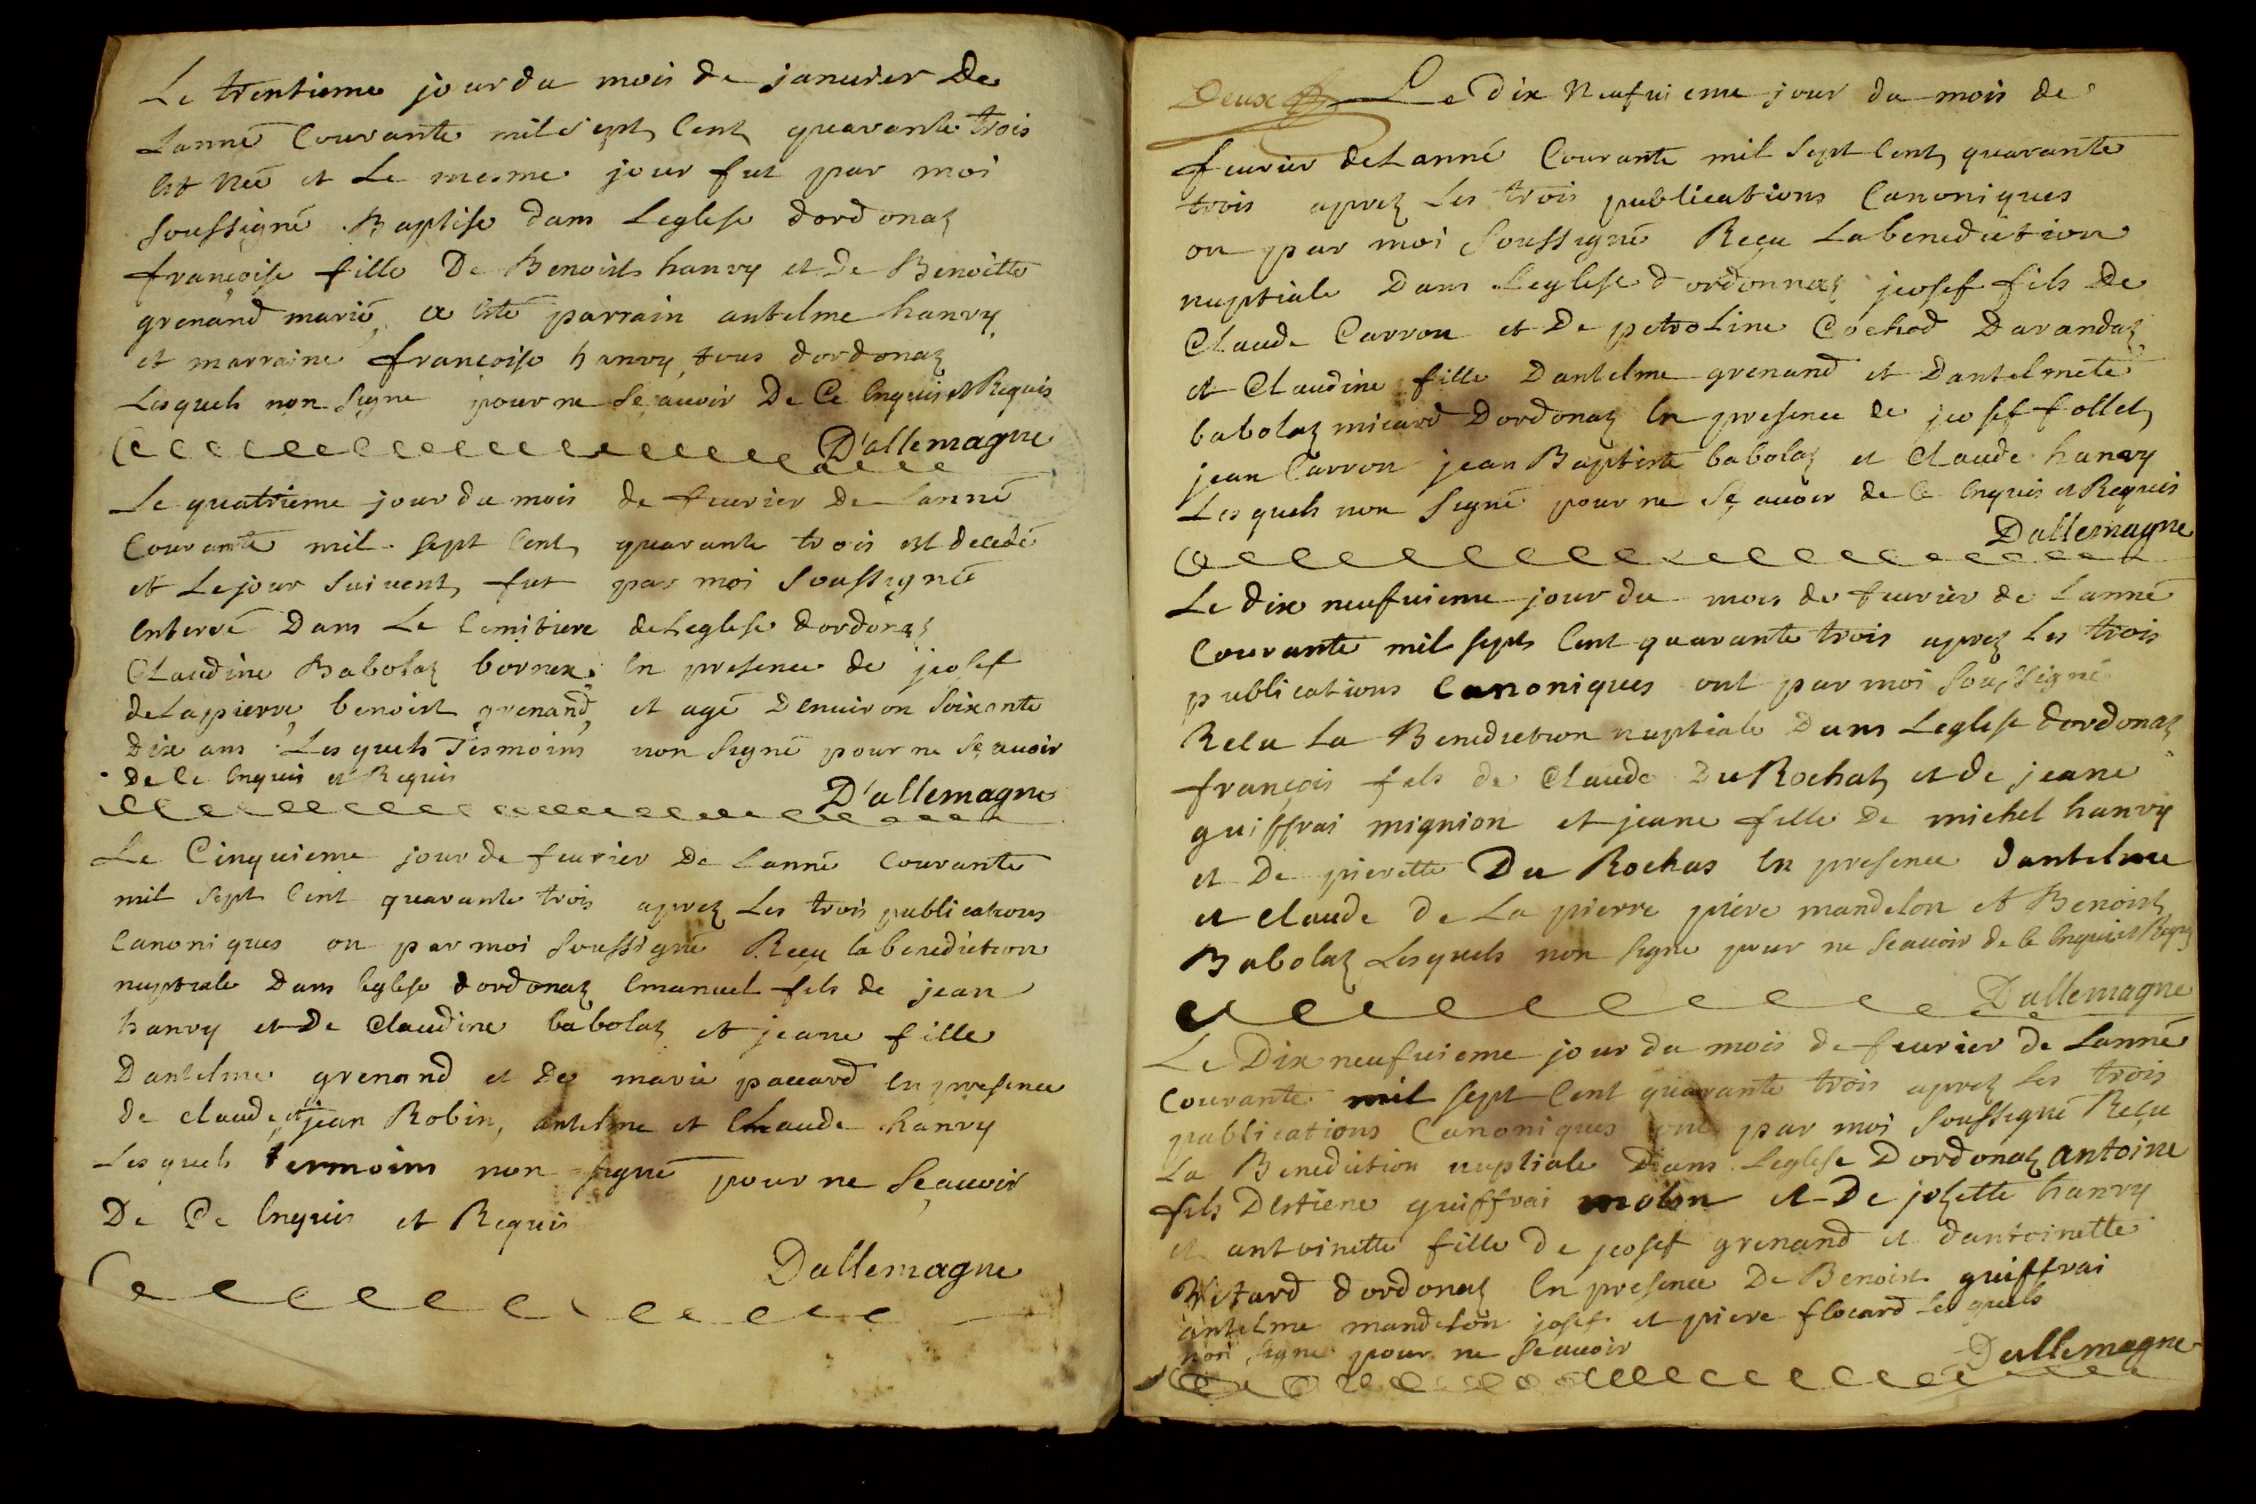 Le trentieme jour du mois de januier De
Lanné Courante mil sept Cent quarante trois
Est Neé et Le mesme jour fut par moi
soussigné Baptise dans Leglese dordonaz
françoise fille De Benoist hanvy et de Benoitte
grenand marié, a Esté parrain antelme hanvy
et marraine françoise hanvy, tous dordonaz
Lesquels non signe pour ne sçauoir De Ce Enquis et Requis
D'allemagne
Le quatrieme jour du mois de feurier De Lanné
Courante mil sept Cent quarante trois est decedé
et Le jour suiuent, fut par moi soussigné
Enterré Dans Le Cemitiere de Leglese dordonaz
Claudine Babolaz bornex, En presence de joosef
de Lapierre, benoist grenand, et agé Denuiron soixante
Dix ans Lesquels Tesmoins non signé pour ne sçauoir
de Ce Enquis et Requis
D'allemagne
Le Cinquieme jour de feurier De Lanné Courante
mil sept Cent quarante trois aprez Les trois publications
Canoniques on par moi soussigné Reçu la benediction
nuptiale Dans leglese dordonaz Emanuel fils de jean
hanvy et De Claudine babolaz et jeane fille
Dantelme grenand et De marie pauard En presence
de claude, et jean Robin, antelme et Claude hanvy
Lesquels termoins non signé pour ne sçauoir
De Ce Enquis et Requis
Dallemagne
Deux Le Dix Neufuieme jour du mois de
feurier de Lanné Courante mil sept Cent quarante
trois aprez Les trois publications Canoniques
on par moi soussigné Reçu La benediction
nuptiale Dans Leglese dordonnaz jeosef fils De
Claude Carron et De petroline Cochod Darandaz
et Claudine fille Dantelme grenand et Dantelmete
babolaz micard Dordonaz En presence de jeosef follet,
jean Carron jean Baptiste babolaz et Claude hanvy
Lesquels non signé pour ne sçauoir de Ce Enquis et Requis
Dallemagne
Le dix neufuieme jour du mois de feurier de Lanné
Courante mil sept Cent quarante trois aprez Les trois
publications Canoniques ont par moi soussigné
Recu La Benediction nuptiale Dans Leglese dordonaz
françois fils de Claude Du Rochat et de jeane
guiffrai mignion et jeane fille de michel hanvy
et De pierette Du Rochas En presence dantelme
et claude de La pierre piere mandelon et Benoist
Babolaz Lesquels non signe pour ne sçauoir de Ce Enquis et Requis
Dallemagne
Le Dix neufuieme jour du mois de feurier de Lanné
Courante mil sept Cent quarante trois aprez Les trois
publications Canoniques ont par moi soussigné Reçu
La Benediction nuptiale Dans Leglese Dordonaz antoine
fils Destiene guiffrai molon et De jozette hanvy
et antoinette fille De jeosef grenand et dantoinette
dordonaz En presence De Benoist guiffrai
antelme mandelon josef et piere flocard lesquels
non signe pour ne sçauoir
Dallemagne